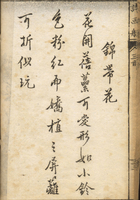 錦帶花
花開蓓蕾可愛形如小鈴
色粉紅而嬌植之屏籬
可折供玩